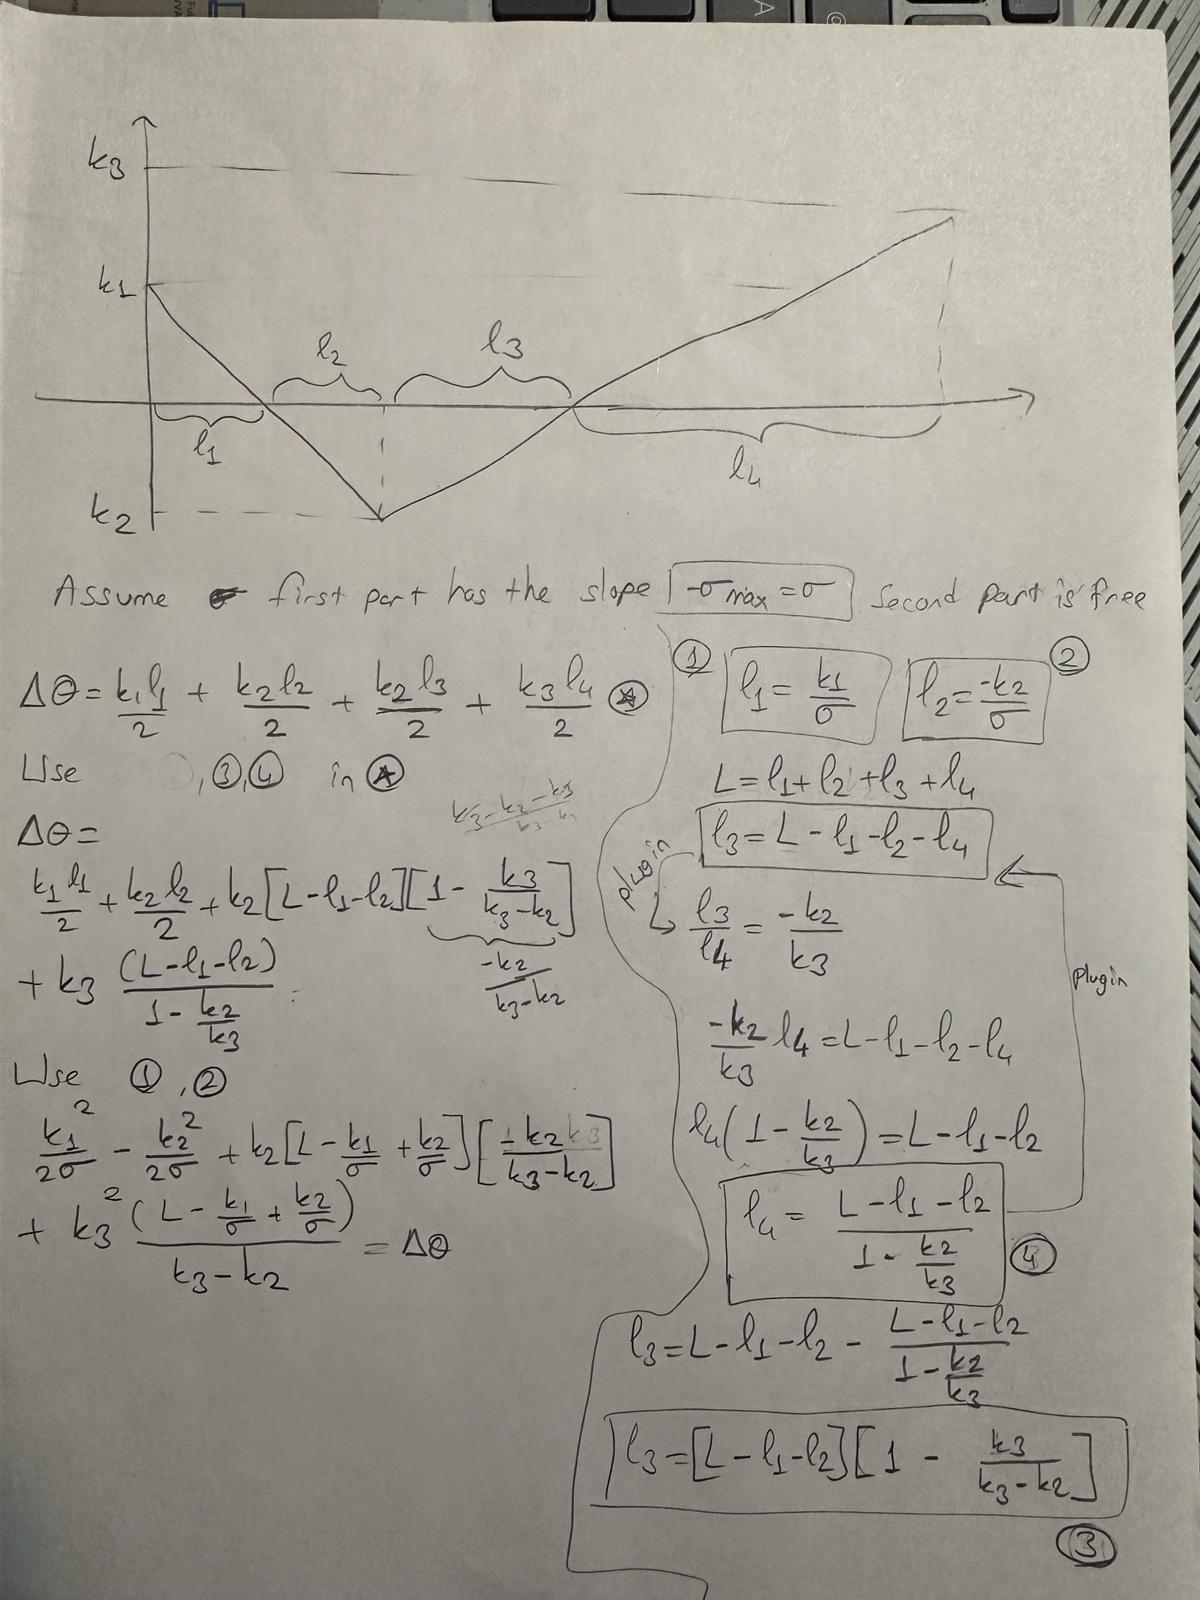 k3
k1
l2
l3
l1
l4
k2
Assume first part has the slope -σmax=σ Second part is free
Δθ = k1l1/2 + k2l2/2 + k2l3/2 + k3l4/2 ⍟
Use ③,④ in ⍟
Δθ=
k1l1/2 + k2l2/2 + k2[L-l1-l2][1 - k3/(k3-k2)]
-k2/(k3-k2)
+ k3 (L-l1-l2)/(1 - k2/k3)
Use ①,②
k1²/2σ - k2²/2σ + k2[L - k1/σ + k2/σ][-k2/(k3-k2)]
+ k3² (L - k1/σ + k2/σ)/(k3-k2) = Δθ
① l1 = k1/σ l2 = -k2/σ ②
L=l1+l2+l3+l4
l3 = L-l1-l2-l4
plugin
l3/l4 = -k2/k3
plugin
-k2/k3 l4 = L-l1-l2-l4
l4(1 - k2/k3) = L-l1-l2
l4 = (L-l1-l2)/(1 - k2/k3) ④
l3 = L-l1-l2 - (L-l1-l2)/(1 - k2/k3)
l3 = [L-l1-l2][1 - k3/(k3-k2)]
③